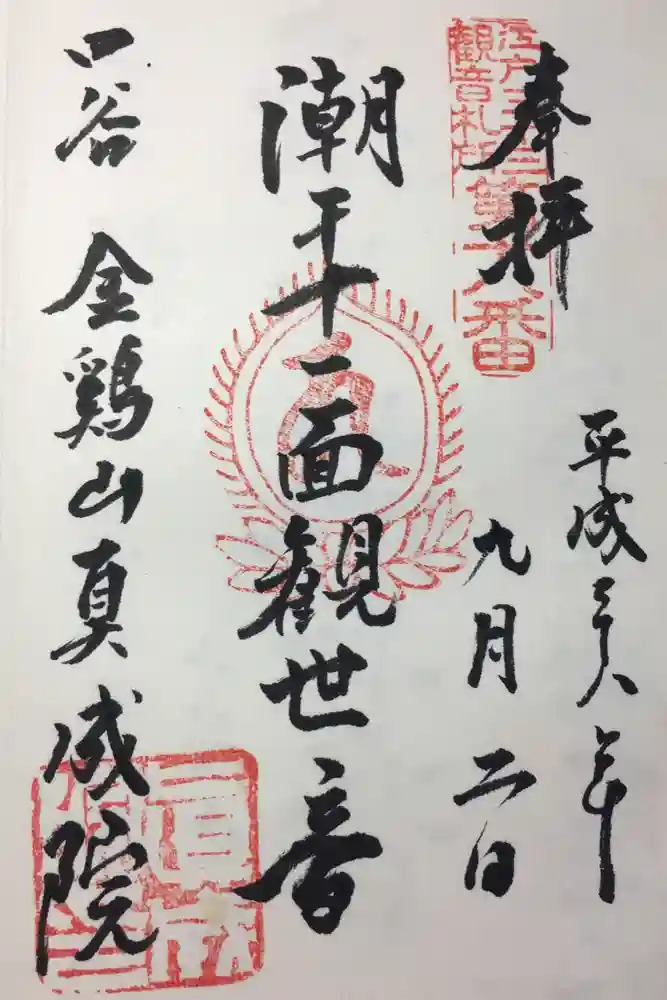 奉拝
江戸三十三
観音札所
第十八番
平成二十八年
九月二日
潮干十一面観世音
四谷 金鶏山真成院